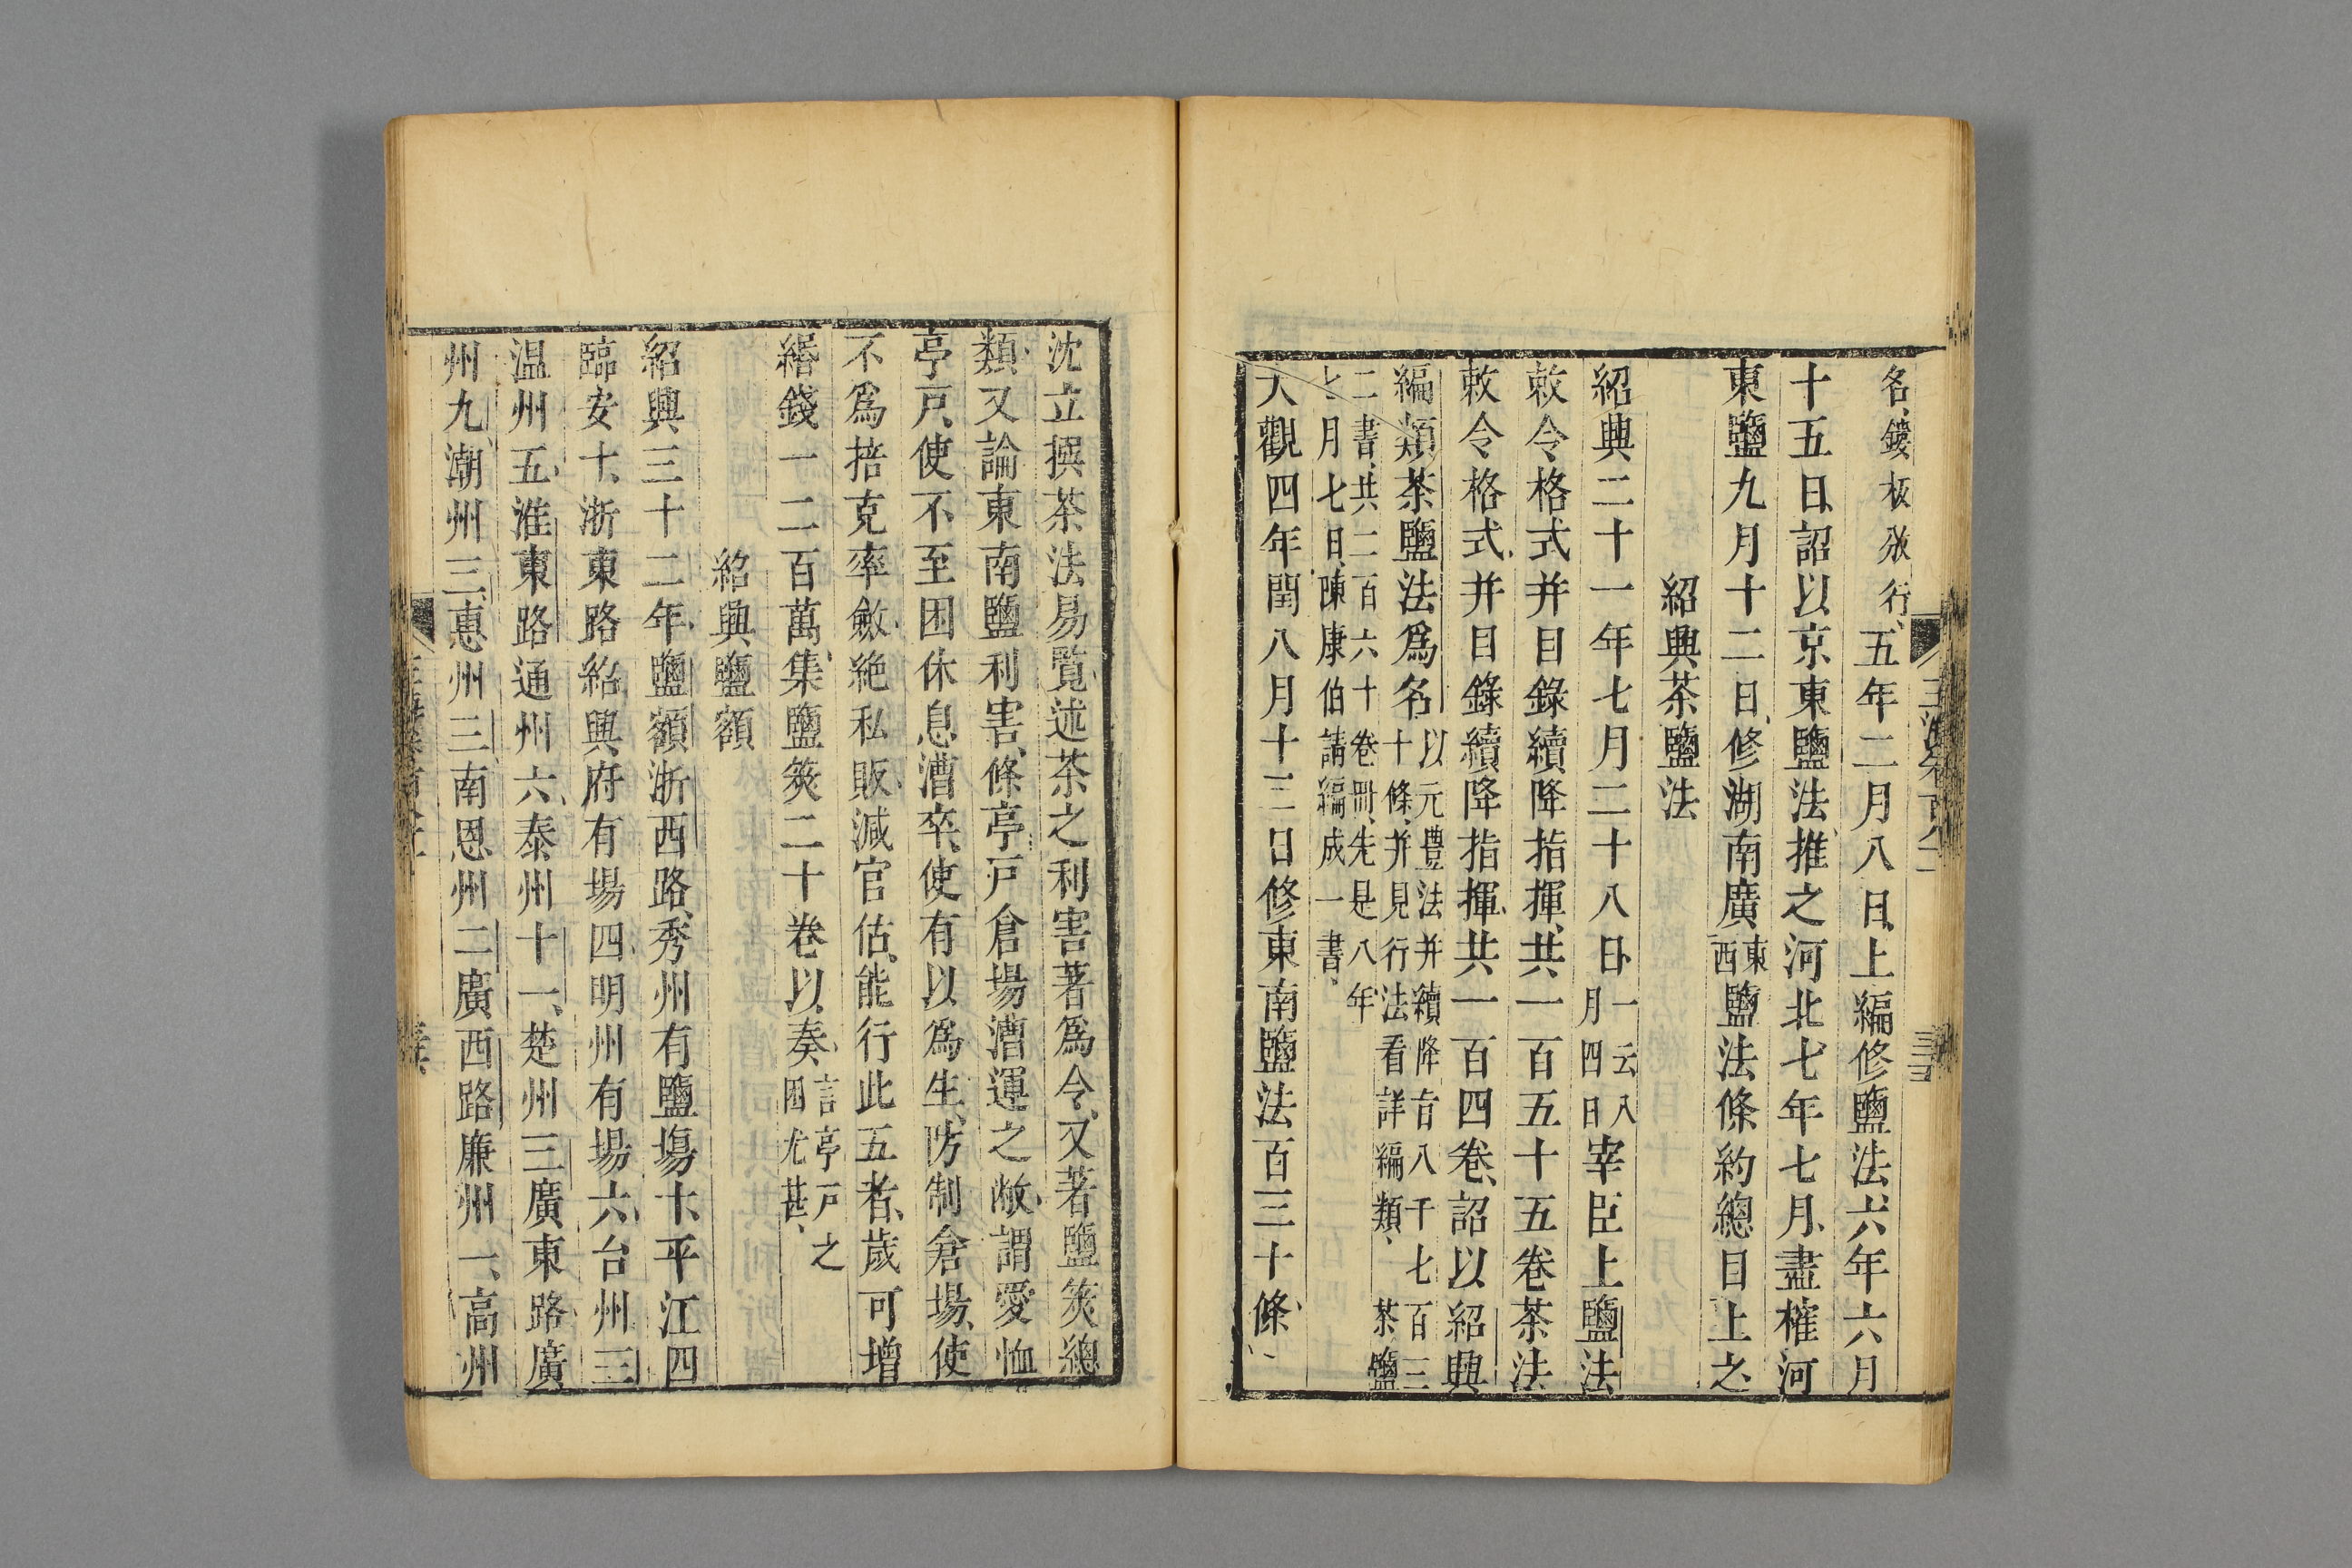 名鏤板放行五年二月八日上編修鹽法六年六月
十五日詔以京東鹽法推之河北七年七月盡榷河
東鹽九月十二日修湖南廣東西鹽法條約總目上之
紹興茶鹽法
紹興二十一年七月二十八日一云八月四日宰臣上鹽法
敕令格式并目錄續降指揮共一百五十五卷茶法
敕令格式并目錄續降指揮共一百四卷詔以紹興
編類茶鹽法爲名以元豐法并續降旨八千七百三十條并見行法看詳編類茶鹽
二書共二百六十卷冊先是八年七月七日陳康伯請編成一書
大觀四年閏八月十三日修東南鹽法百三十條
沈立撰茶法易覽述茶之利害著爲令又著鹽筴總
類又論東南鹽利害條亭戸倉場漕運之敝謂愛恤
亭戸使不至困休息漕卒使有以爲生防制倉場使
不爲掊克率斂絶私販減官估能行此五者歲可增
緡錢一二百萬集鹽筴二十卷以奏言亭戸之困尤甚
紹興鹽額
紹興三十二年鹽額浙西路秀州有鹽場十平江四
臨安十浙東路紹興府有場四明州有場六台州三
温州五淮東路通州六泰州十一楚州三廣東路廣
州九潮州三惠州三南恩州二廣西路廉州一高州